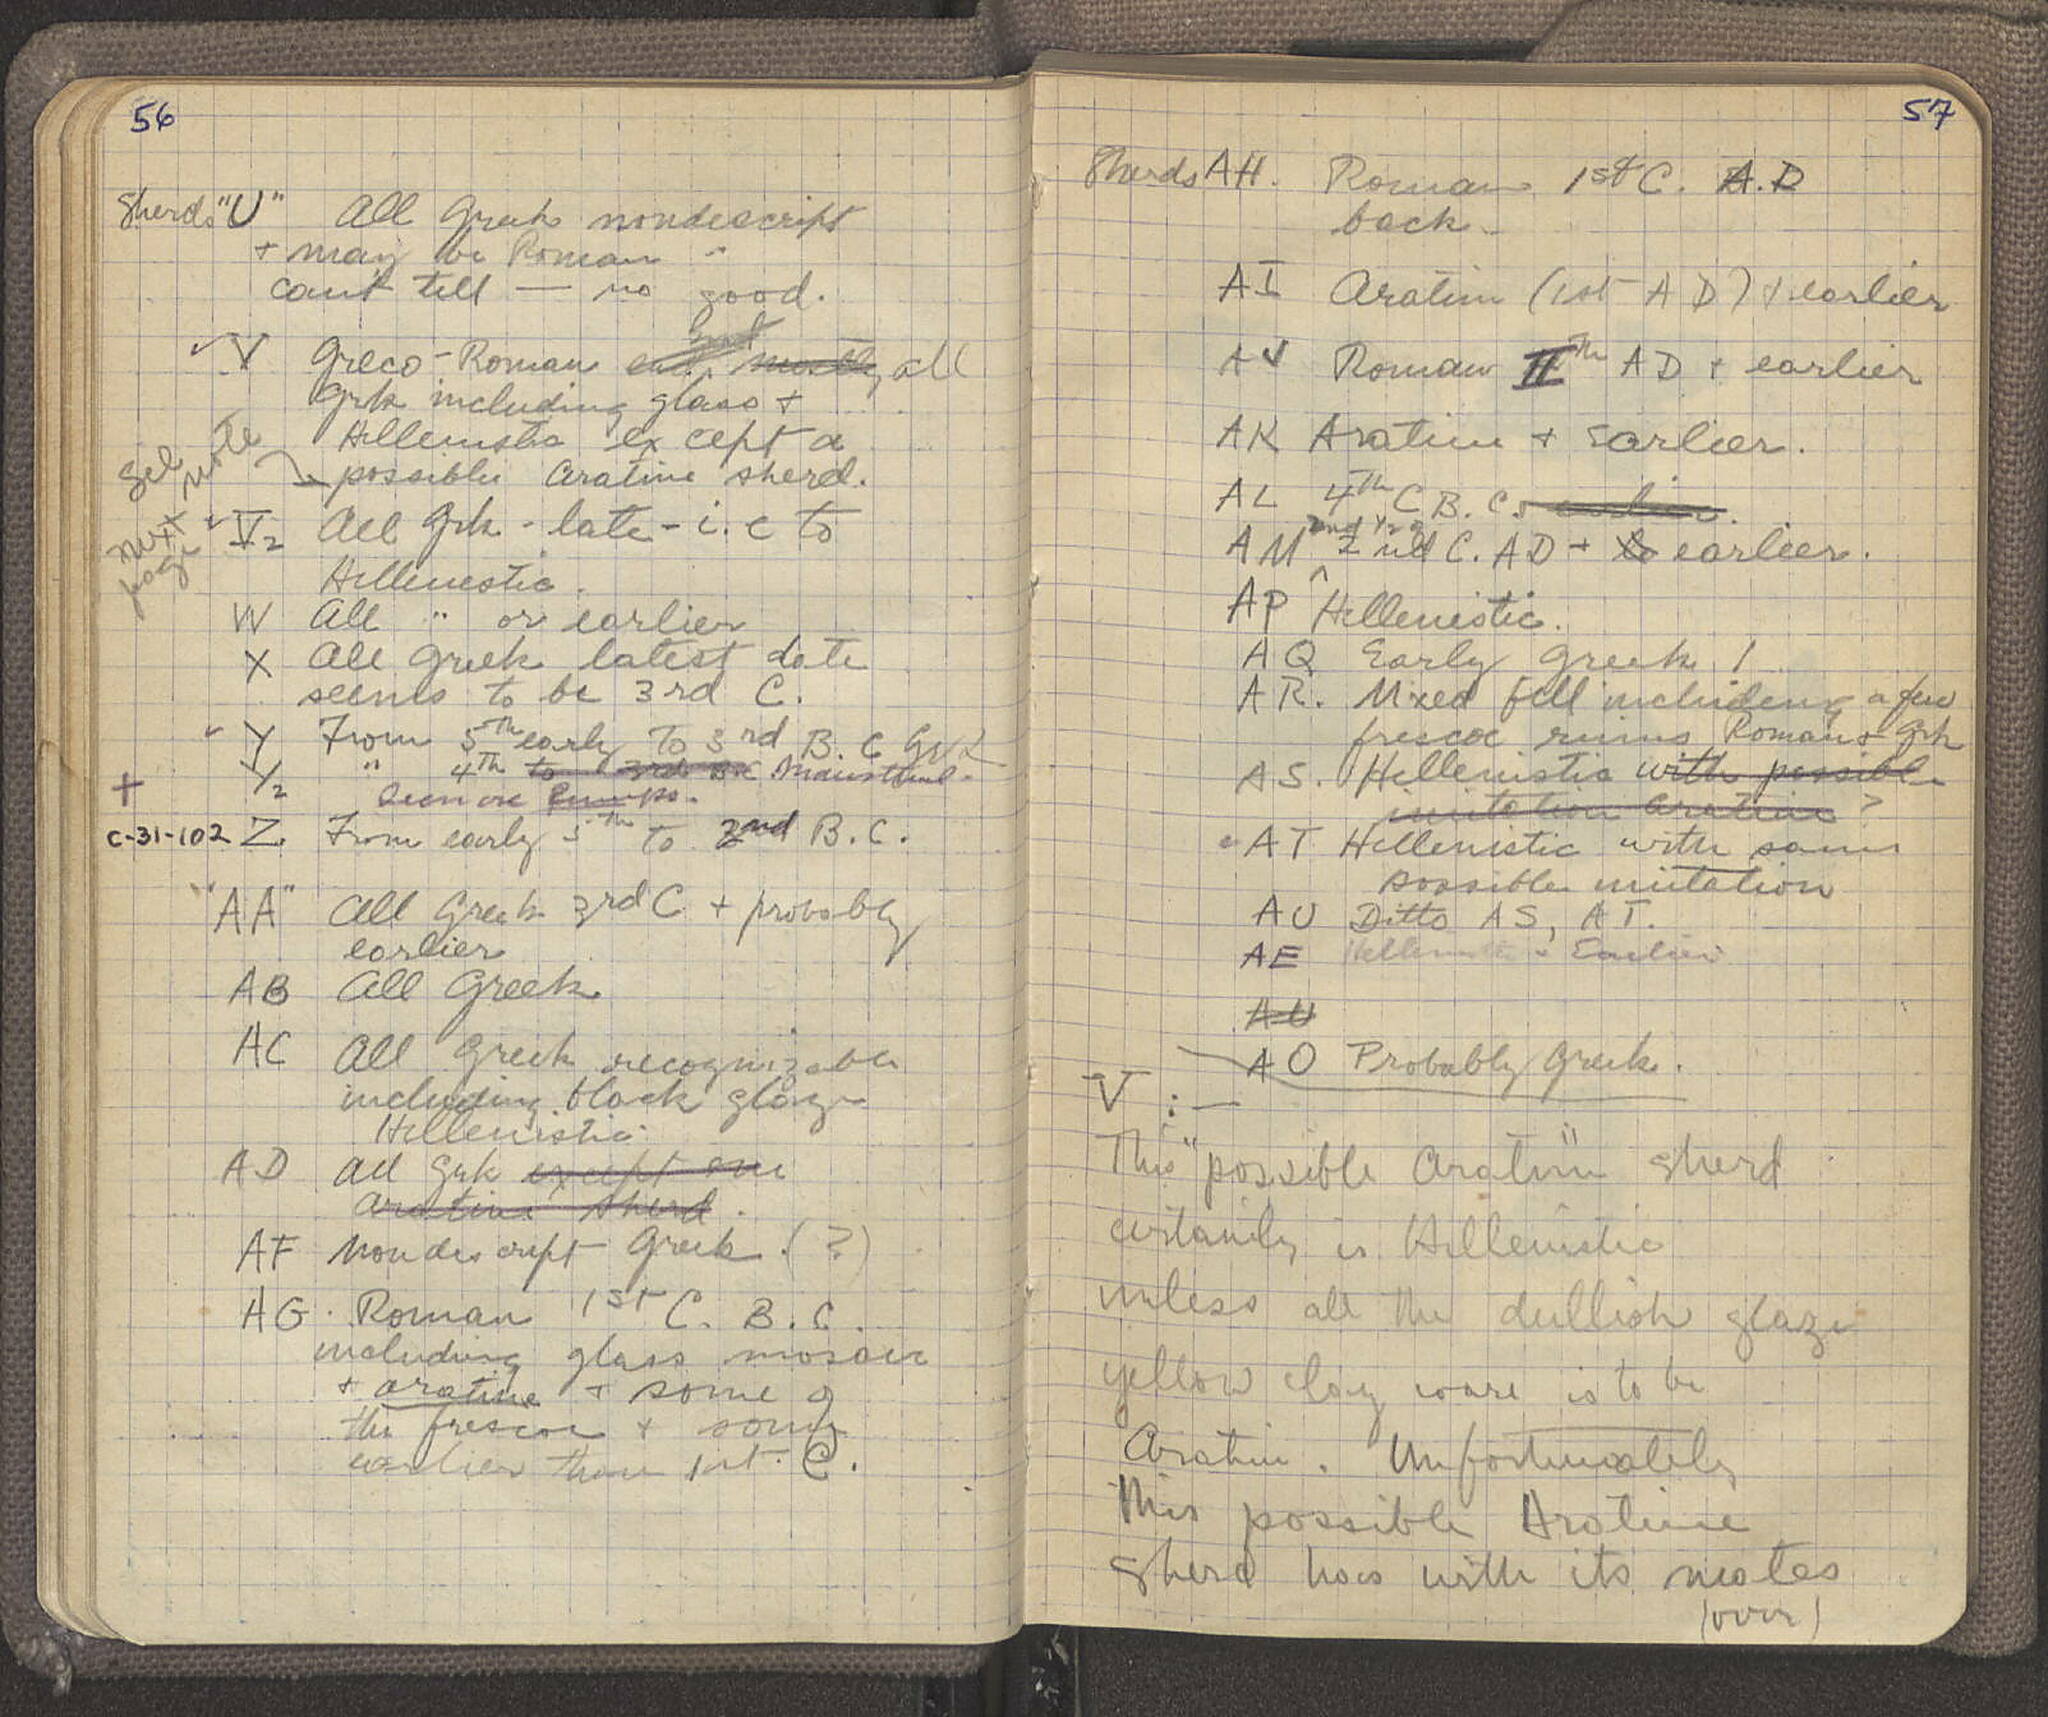 56
Sherds "U" All Greek nondescript
+ may be Roman -
can't tell — no good.
V Greco-Roman but all
Grk including glass +
Hellenistic except a
possible aratine sherd.
See note
next
page
V2 All Grk - late - i.e to
Hellenistic.
W All " or earlier
X All Greek latest date
seems to be 3rd C.
Y From 5th early to 3rd B.C Grk
+ Y2 " 4th to 3rd B.C.
C-31-102 Z. From early 5th to 2nd B.C.
"AA" All Greek 3rd C + probably
earlier
AB All Greek
AC All Greek recognizable
including black glaze
Hellenistic
AD All Grk except one
aratine sherd.
AF Nondescript Greek. (?)
AG. Roman 1st C. B.C.
including glass mosaic
+ aratine + some of
the fresco + some
earlier than 1st. C.
57
Sherds AH. Roman 1st C. A.D
back.
AI Aratine (1st AD) + earlier
AJ Roman II th AD + earlier
AK Aratine + Earlier.
AL 4th C B.C.
AM 2nd C. AD + earlier.
AP Hellenistic.
AQ Early Greek !
AR. Mixed fill including a few
fresco Roman + Grk
AS. Hellenistic with possible
imitation aratine ?
AT Hellenistic with some
possible imitation
AU Ditto AS, AT.
AE Hellenistic + Earlier
AU
AO Probably Greek.
V :—
This "possible Aratine" sherd
certainly is Hellenistic
unless all the dullish glaze
yellow clay ware is to be
Aratine. Unfortunately
this possible Aratine
sherd has with its mates
(over)